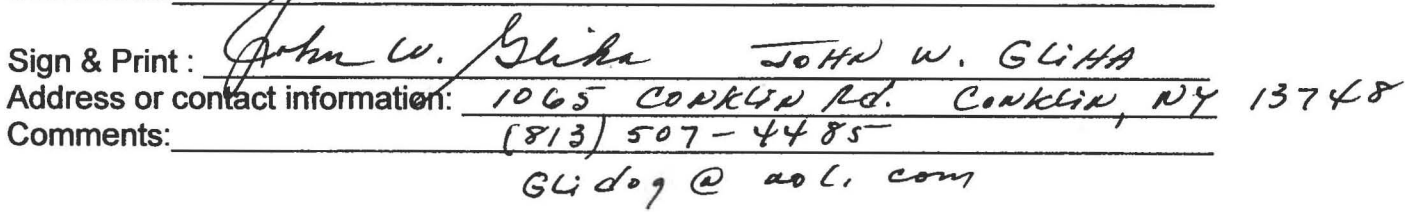 Sign & Print : John W. Gliha JOHN W. GLIHA
Address or contact information: 1065 CONKLIN Rd. CONKLIN, NY 13748
Comments: (813) 507-4485
GLidog @ aol. com